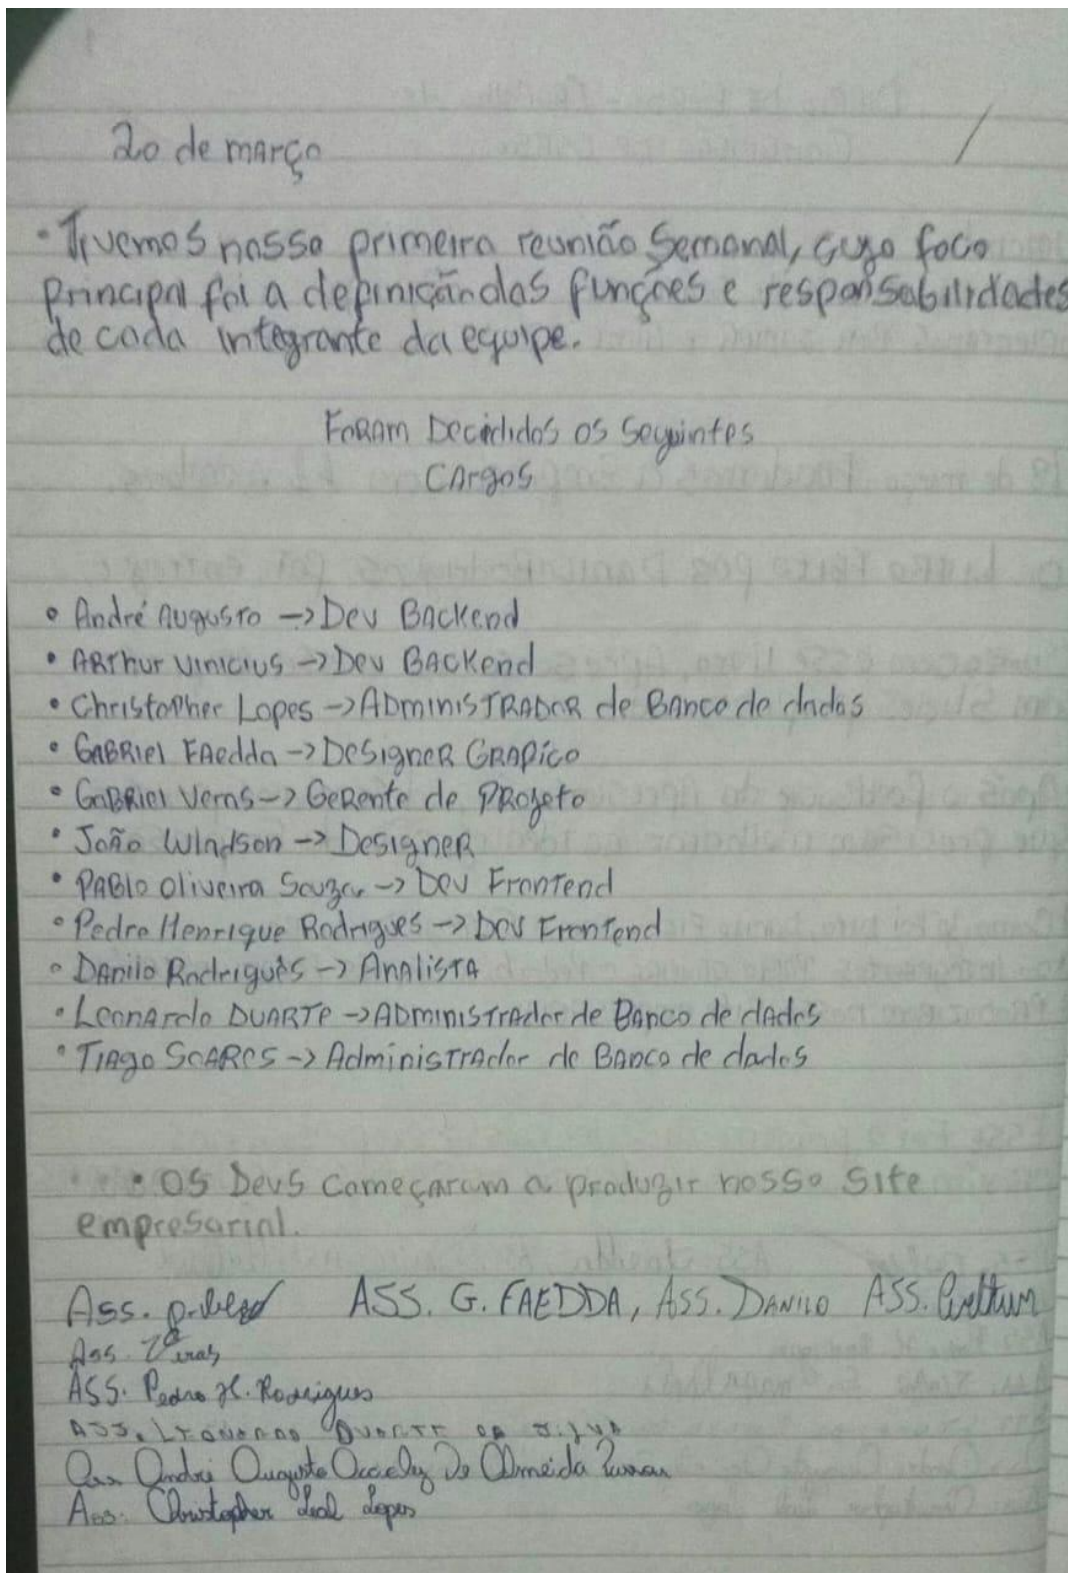 20 de março
• Tivemos nossa primeira reunião semanal, cujo foco
principal foi a definição das funções e responsabilidades
de cada integrante da equipe.
Foram Decididos os Seguintes
Cargos
• André Augusto -> Dev Backend
• Arthur Vinicius -> Dev Backend
• Christopher Lopes -> Administrador de Banco de dados
• Gabriel Faedda -> Designer Grapico
• Gabriel Veras -> Gerente de Projeto
• João Windson -> Designer
• Pablo Oliveira Souza -> Dev Frontend
• Pedro Henrique Rodrigues -> Dev Frontend
• Danilo Rodrigues -> Analista
• Leonardo Duarte -> Administrador de Banco de dados
• Tiago Soares -> Administrador de Banco de dados
• Os Devs começaram a produzir nosso site
empresarial.
Ass. Pablo ASS. G. FAEDDA, Ass. Danilo ASS. Arthur
Ass. Veras
ASS. Pedro H. Rodrigues
ASS. Leonardo Duarte da Silva
Ass André Augusto De Almeida
Ass: Christopher Leal Lopes